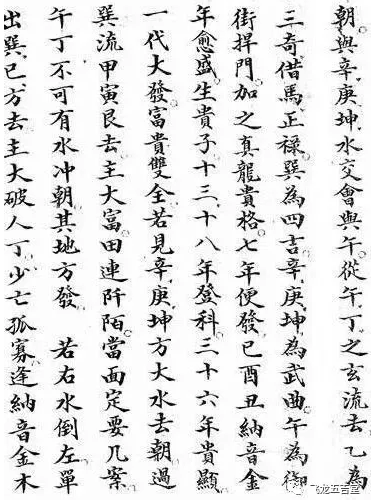 朝與辛庚坤水交會與午從午丁之玄流去乙為
三奇借馬正祿巽為四吉辛庚坤為武曲午為御
街捍門加之真龍貴格七年便發巳酉丑納音金
年愈盛生貴子十三十八年登科三十六年貴顯
一代大發富貴雙全若見辛庚坤方大水去朝過
巽流甲寅艮去主大富田連阡陌當面定要几案
午丁不可有水冲朝其地方發 若右水倒左單
出巽巳方去主大破人丁少亡孤寡逢納音金木
飞龙五吉堂